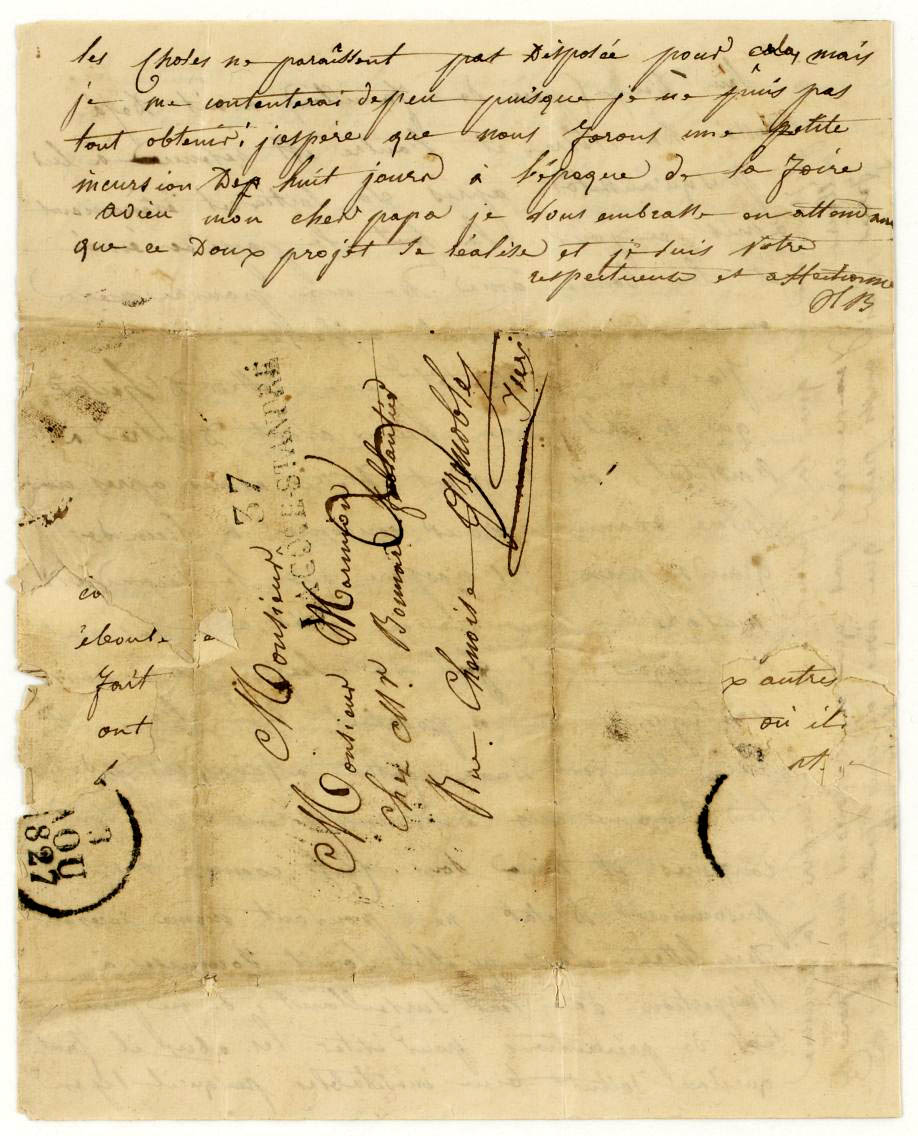 les choses ne paraîssent pas disposée pour cela, mais
je me contenterai depeu puisque je ne puis pas
tout obtenir; j'espère que nous ferons une petite
incursion Des huit jours à l'époque de la foire
adieu mon cher papa je vous embrasse en attendan
que ce Doux projet se réalise et je suis votre
respectueuse et affectionne
B
37
LA COTE-ST-ANDRÉ
Monsieur
Monsieur Marmion
chez Mr Bonnard
Rue Chenoise Grenoble
Isere
co
éboule
fait
ont
x autres
où il
AOU
1827